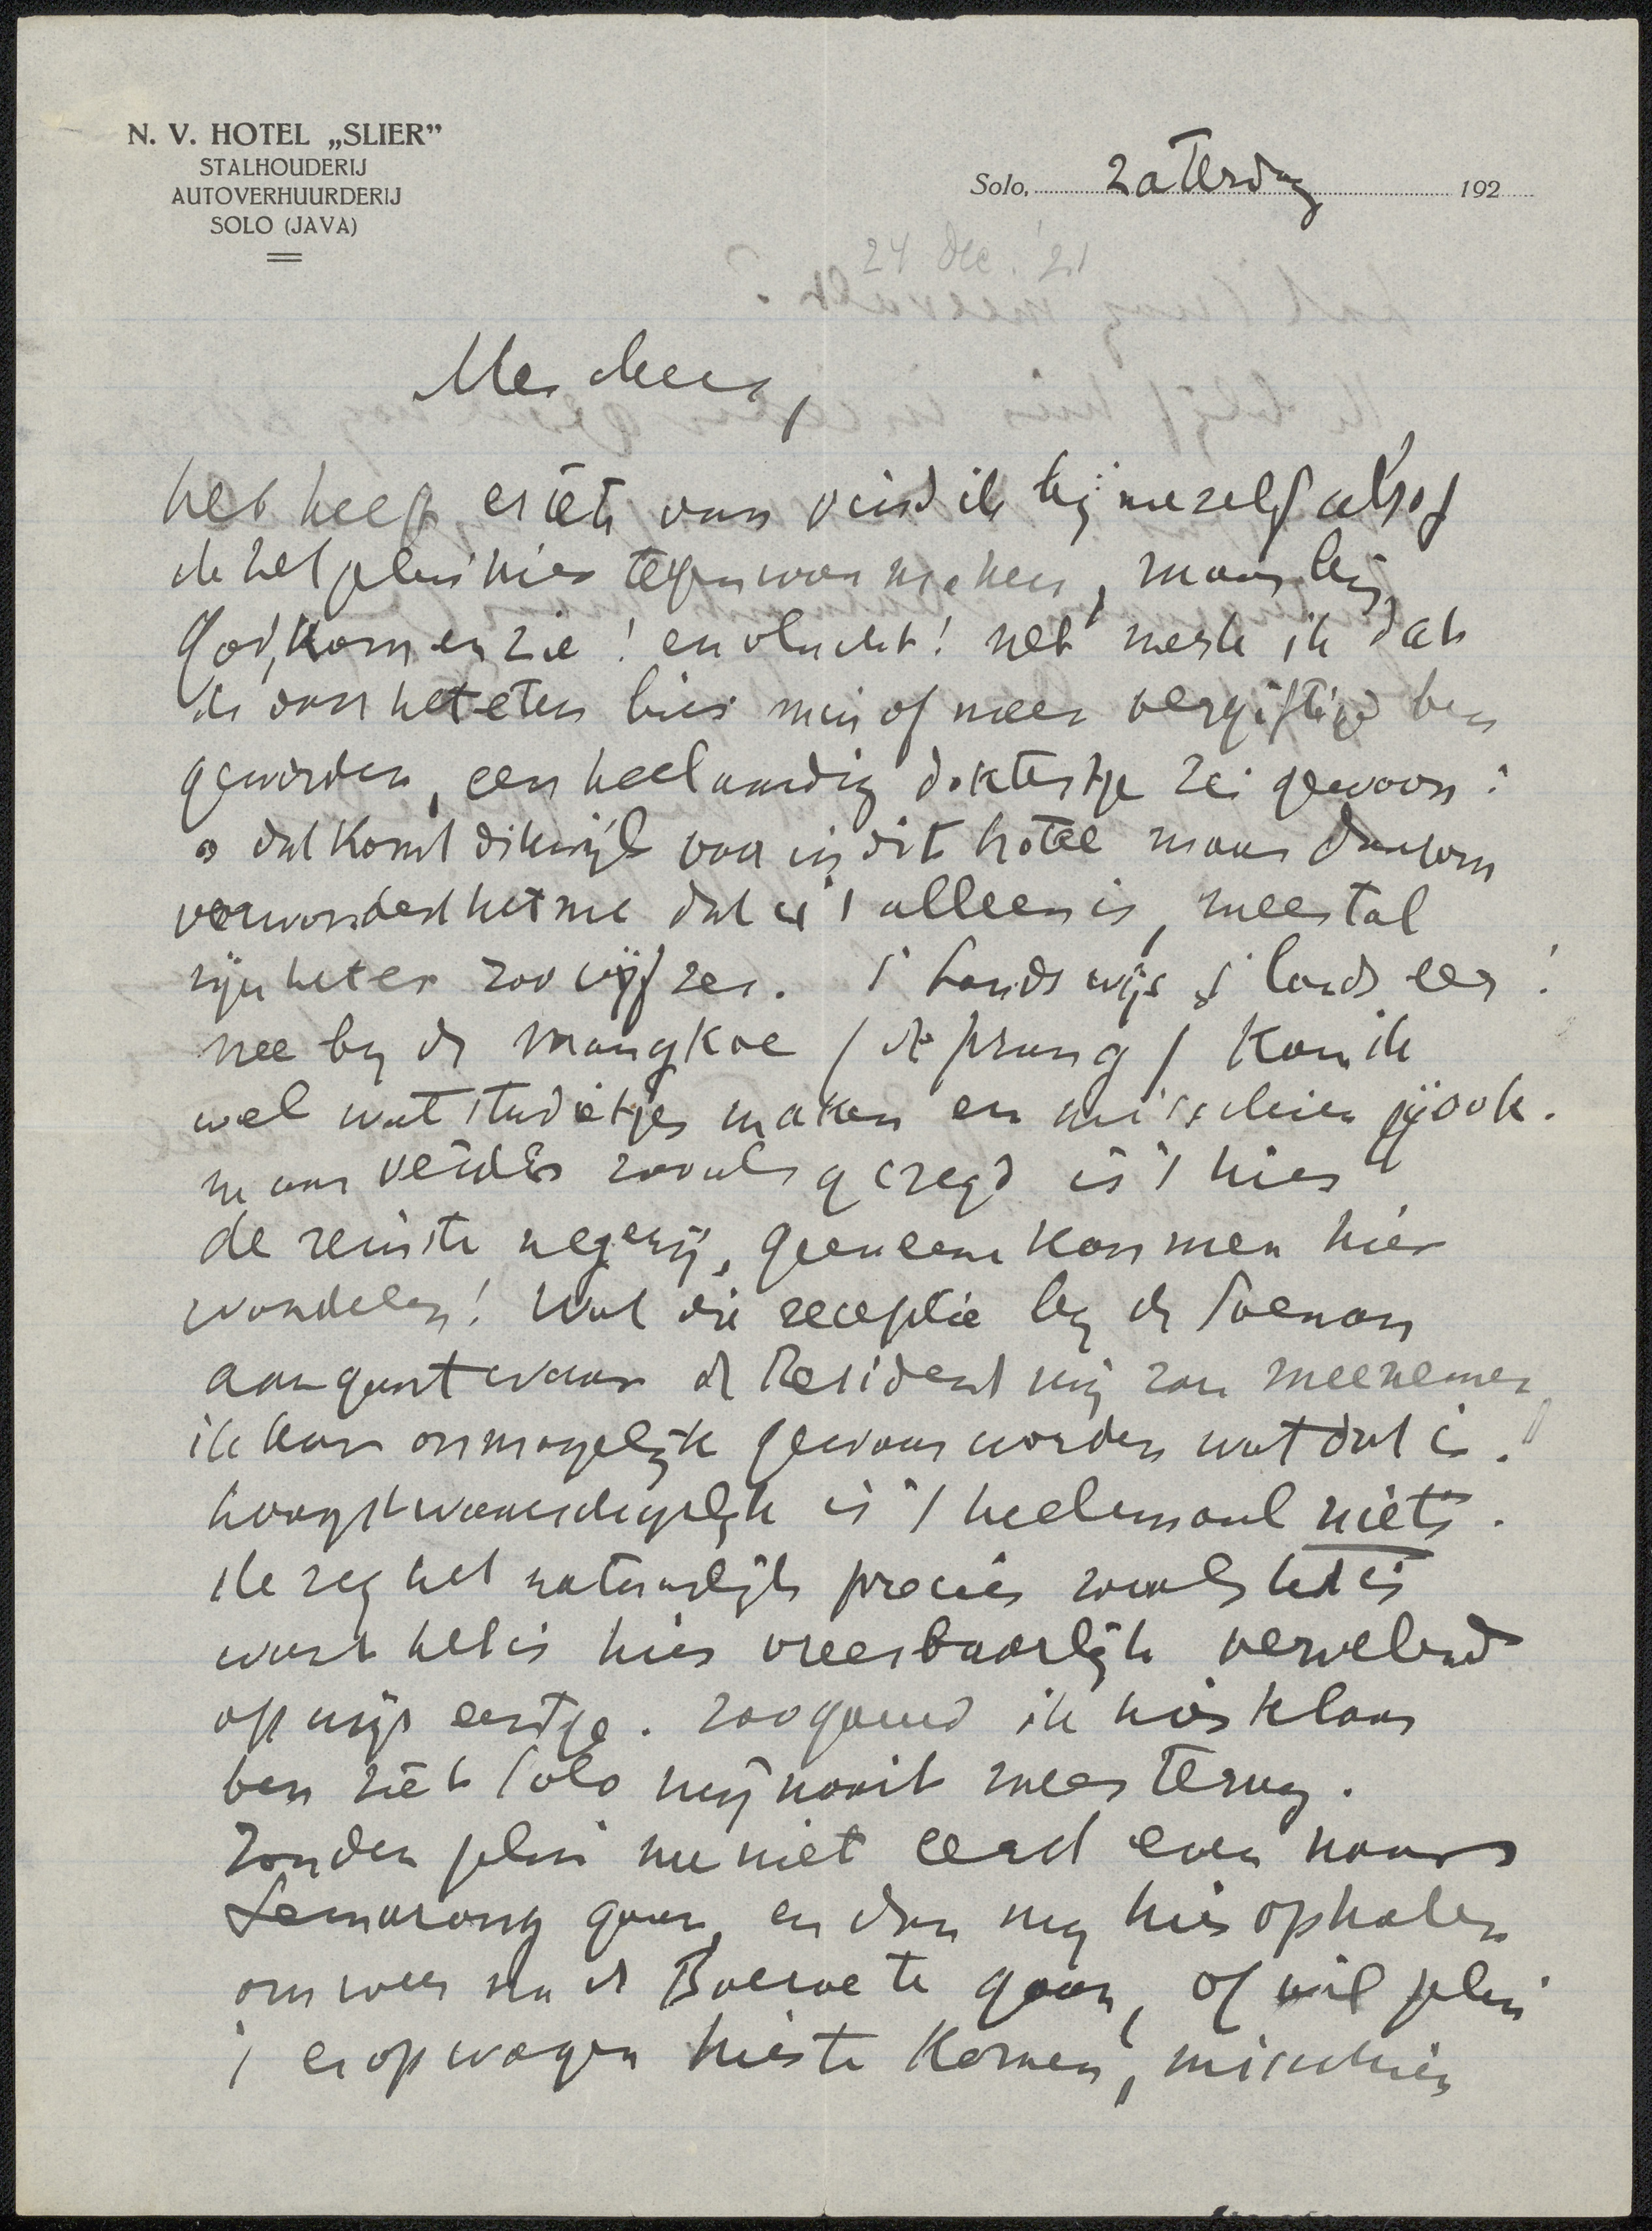 N. V. HOTEL „SLIER”
STALHOUDERIJ
AUTOVERHUURDERIJ
SOLO (JAVA)
Solo, Zaterdag 192
24 dec. '21
het heeft er iets van vind ik bij mezelf alsof
ik het plein hier tegen wou maken, maar bij
God, kom en zie! en vlucht! net merk ik dat
ik van het eten hier min of meer vergiftigd ben
geworden, een heel aardig doktertje zei gewoon:
o dat komt dikwijls voor in dit hotel maar daarom
verwondert het me dat u 't alleen is, meestal
zijn het er zoo vijf zes. 's Lands wijs 's lands eer!
nee by de Mangkoe (de prang) kan ik
wel wat studietjes maken en misschien jij ook.
maar verder zooals gezegd is 't hier
de reinste negerij, geeneens kan men hier
wandelen! Wat die receptie bij de Soenan
aangaat waar de Resident mij zou meenemen
ik kan onmogelijk gewaar worden wat dat is!
hoogstwaarschijnlijk is 't heelemaal niets.
ik zeg het natuurlijk precies zooals het is
want het is hier vreesbaarlijk vervelend
op mijn eentje. zoogauw ik hier klaar
ben ziet Solo mij nooit meer terug.
Zouden jelui nu niet eerst even naar
Semarang gaan, en dan mij hier ophalen
om weer na de Boeroe te gaan, of wil jelui
't er op wagen hier te komen, misschien